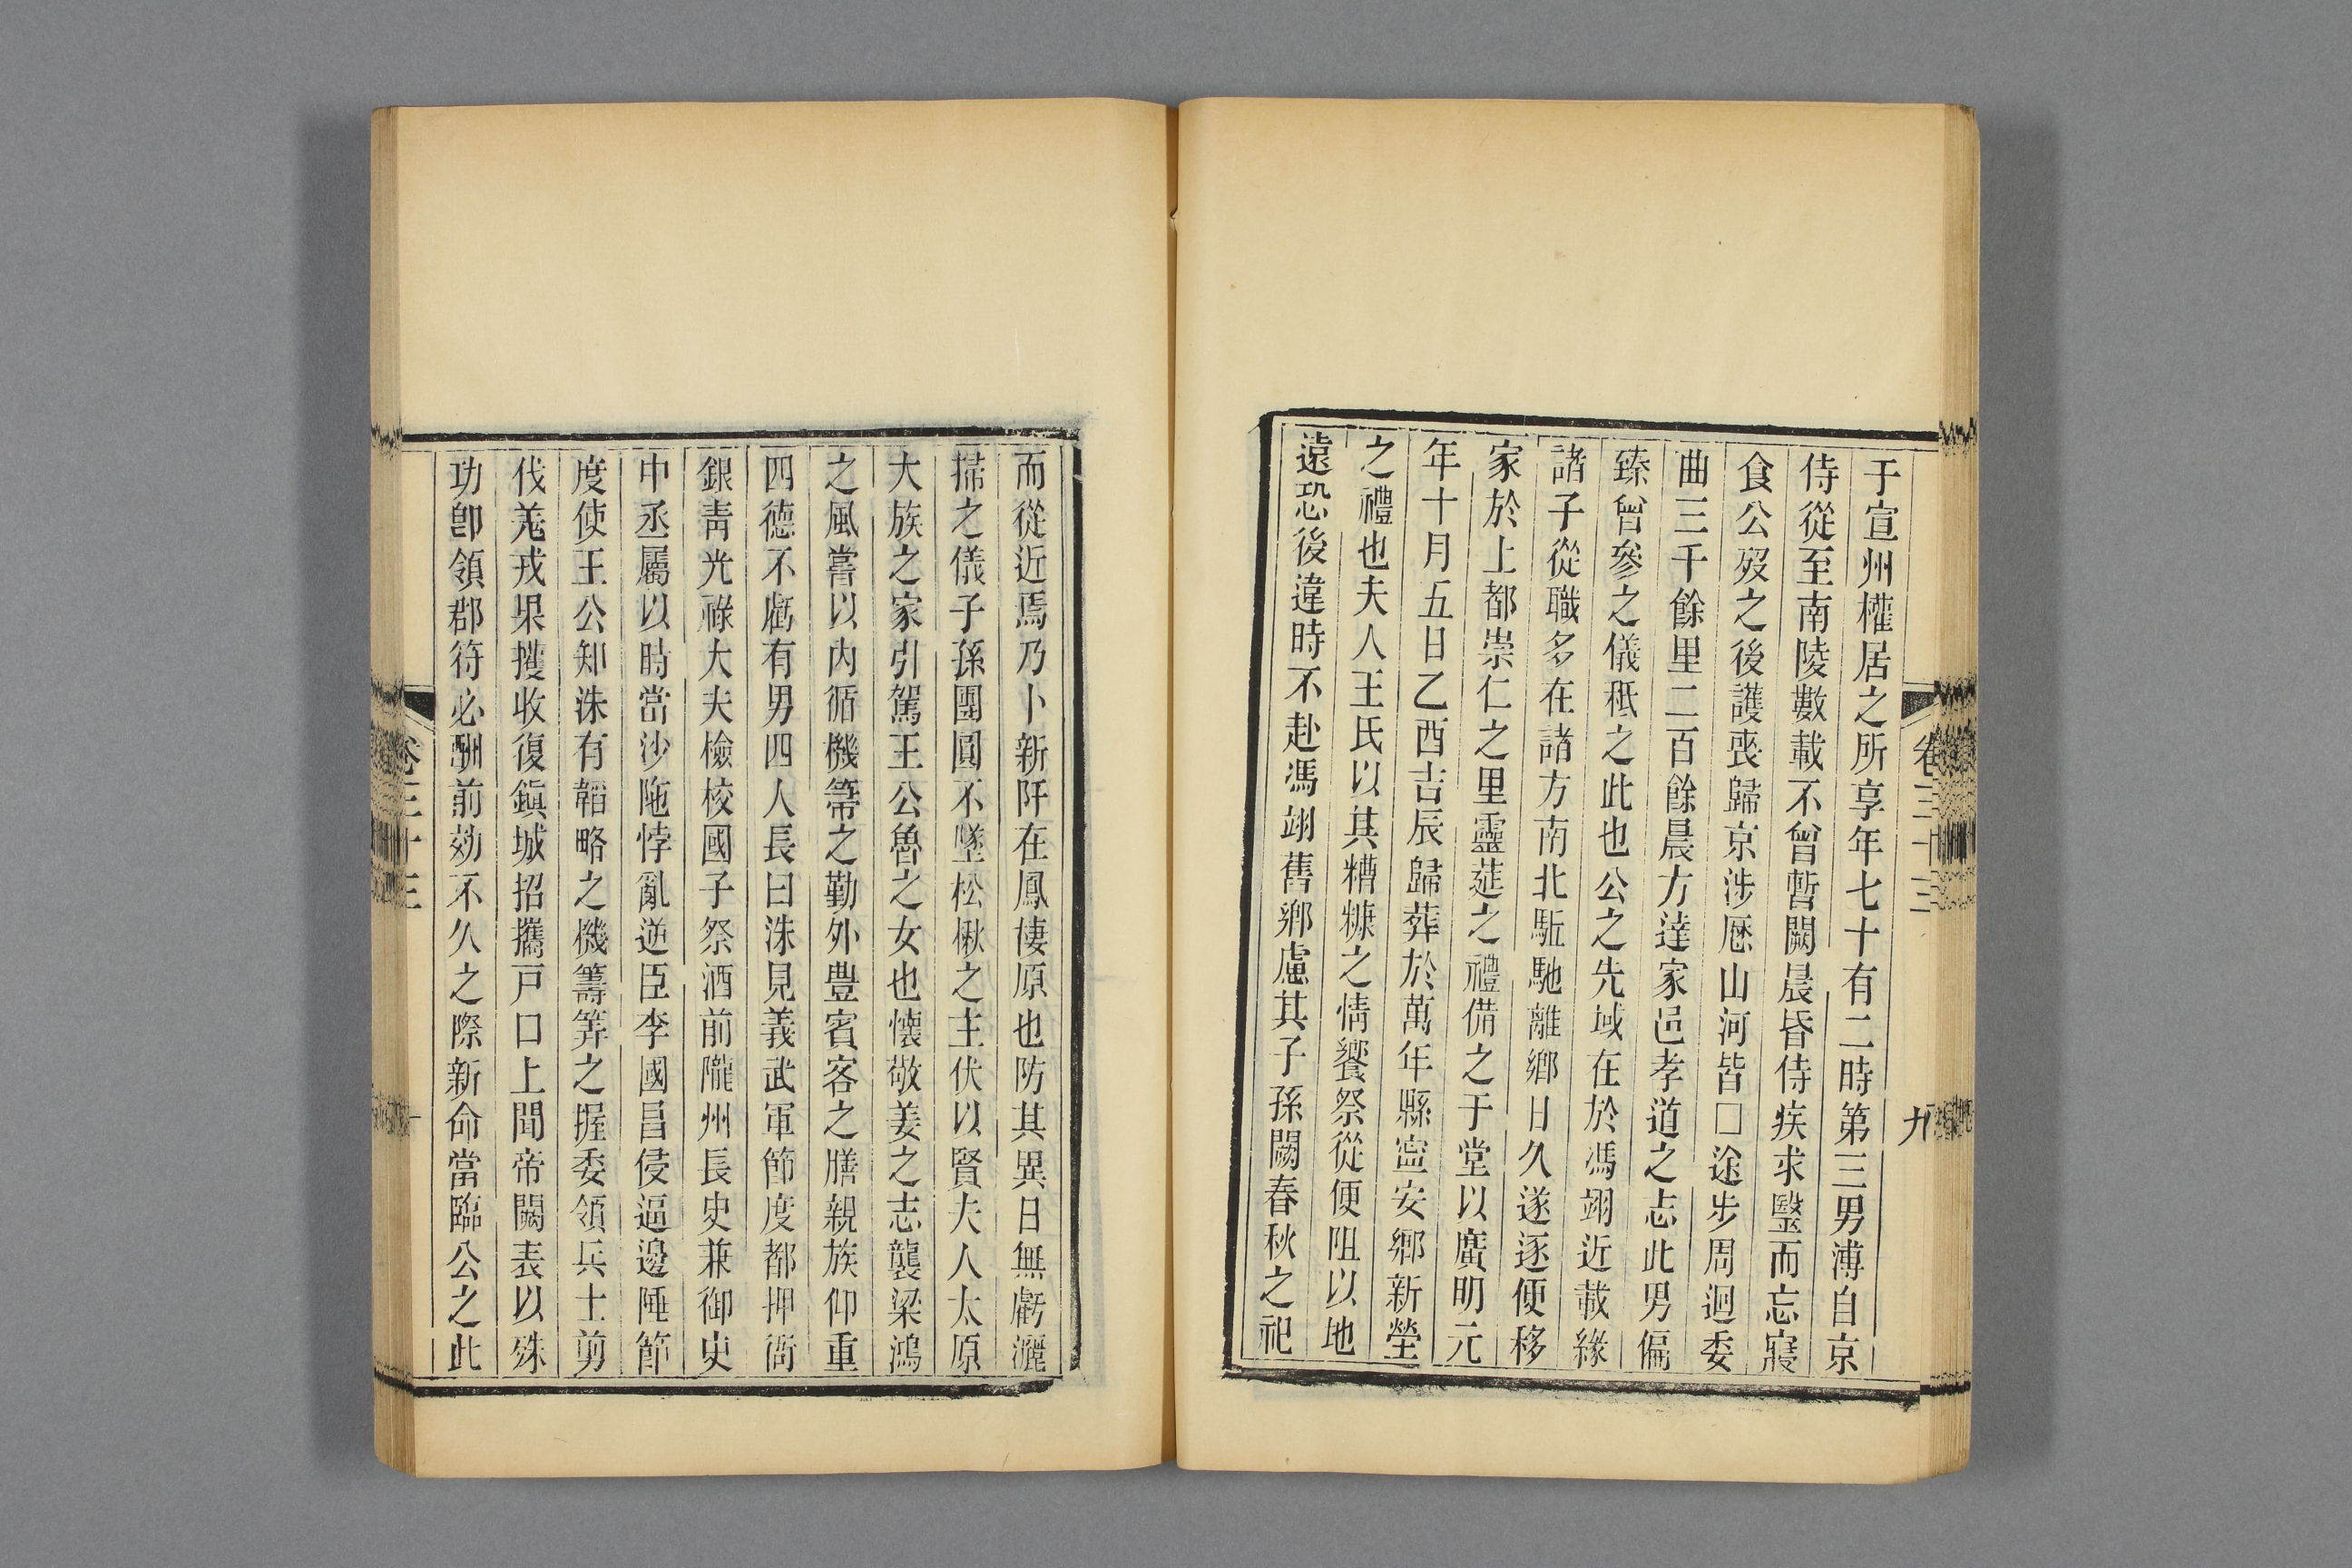 卷三十三
九
于宣州權居之所享年七十有二時第三男溥自京
侍從至南陵數載不曾暫闕晨昏侍疾求毉而忘寢
食公歿之後護喪歸京涉歷山河皆□途步周迴委
曲三千餘里二百餘晨方達家邑孝道之志此男偏
臻曾參之儀秪之此也公之先域在於馮翊近載緣
諸子從職多在諸方南北馳離鄉日久遂逐便移
家於上都崇仁之里靈莚之禮備之于堂以廣明元
年十月五日乙酉吉辰歸葬於萬年縣寍安鄉新塋
之禮也夫人王氏以其糟糠之情饗祭從便阻以地
遠恐後違時不赴馮翊舊鄉慮其子孫闕春秋之祀
而從近焉乃卜新阡在鳳棲原也防其異日無虧灑
掃之儀子孫團圓不墜松楸之主伏以賢夫人太原
大族之家引駕王公魯之女也懷敬姜之志襲梁鴻
之風嘗以內循機箒之勤外豊賓客之膳親族仰重
四德不虧有男四人長曰洙見義武軍節度都押衙
銀青光祿大夫檢校國子祭酒前隴州長史兼御史
中丞屬以時當沙陁悖亂逆臣李國昌侵逼邊陲節
度使王公知洙有韜略之機籌筭之握委領兵士剪
伐羗戎果擭收復鎮城招攜戸口上聞帝闕表以殊
功卽領郡符必酬前効不久之際新命當臨公之此
卷三十三
十